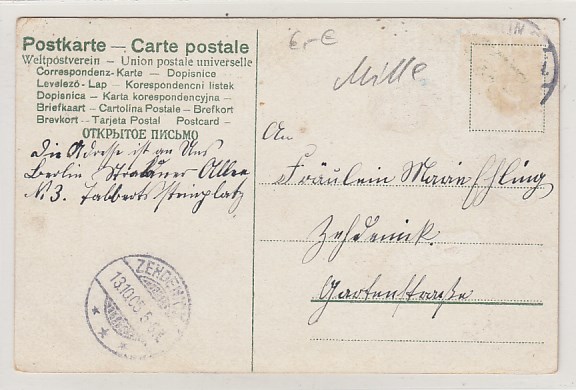 Postkarte — Carte postale
Weltpostverein — Union postale universelle
Correspondenz-Karte — Dopisnice
Levelező-Lap — Korespondencni listek
Dopisnica — Karta korespondencyjna —
Briefkaart — Cartolina Postale — Brefkort
Brevkort — Tarjeta Postal Postcard —
ОТКРЫТОЕ ПИСЬМО
6,- €
Mille
Die Adresse ist an Uns
Berlin Stralauer Allee
N 3. Talberts Steinplatz
An
Fräulein Marie
Zehdenick.
Gartenstraße
ZEHDENICK
13.10.05